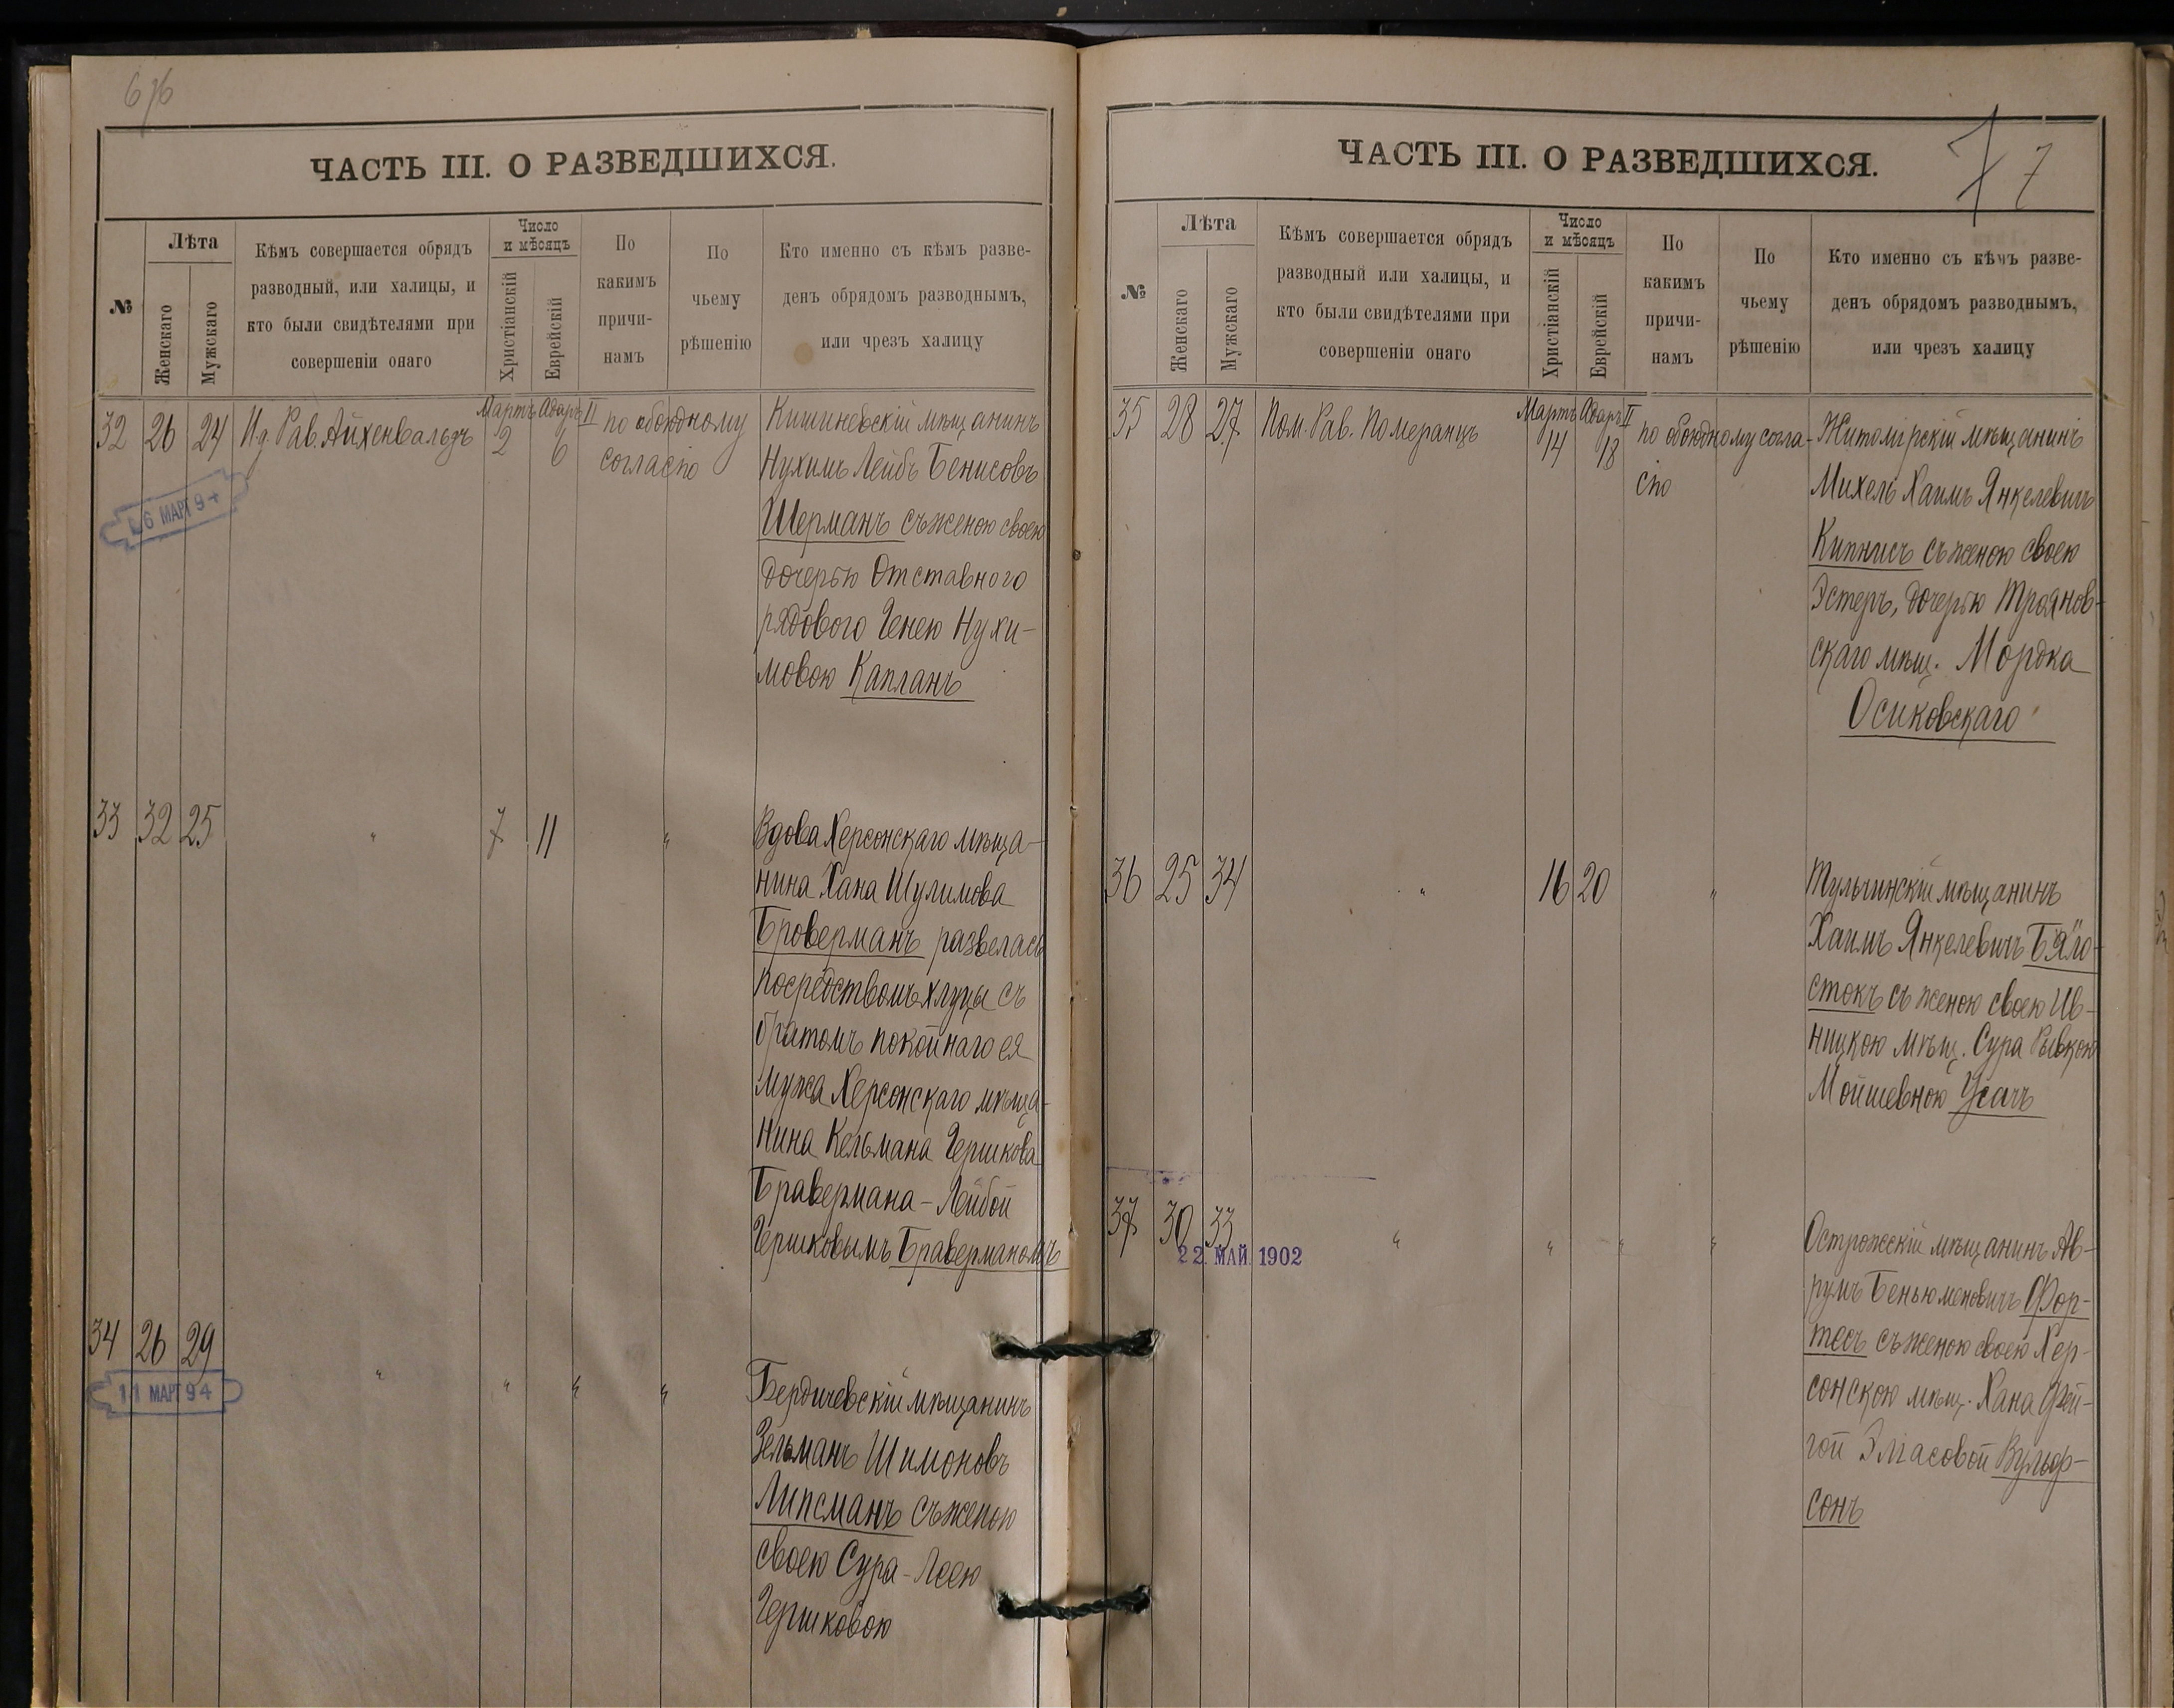 6/6
ЧАСТЬ III. О РАЗВЕДШИХСЯ.
№
Лѣта
Женскаго
Мужскаго
Кѣмъ совершается обрядъ
разводный, или халицы, и
кто были свидѣтелями при
совершеніи онаго
Число
и мѣсяцъ
Христіанскій
Еврейскій
По
какимъ
причи-
намъ
По
чьему
рѣшенію
Кто именно съ кѣмъ разве-
денъ обрядомъ разводнымъ,
или чрезъ халицу
32 26 24 Ид. Рав. Айхенвальдъ
Мартъ 2
Адаръ II 6
по обоюдному
согласію
Кишиневскій мѣщанинъ
Нухимъ Лейбъ Бенисовъ
Шерманъ съ женою своею
дочерью Отставного
рядового Генею Нухи-
мовою Капланъ
6 МАРТ 94
33 32 25 " 7 11 "
Вдова Херсонскаго мѣща-
нина Хана Шулимова
Броверманъ развелась
посредствомъ хлуцы съ
братомъ покойнаго ея
мужа Херсонскаго мѣща-
нина Кельмана Гершкова
Бравермана - Лейбой
Гершковымъ Браверманомъ
34 26 29 " " " "
11 МАРТ 94
Бердичевскій мѣщанинъ
Зельманъ Шимоновъ
Липсманъ съ женою
своею Сура-Леею
Гершковою
7 7
ЧАСТЬ III. О РАЗВЕДШИХСЯ.
№
Лѣта
Женскаго
Мужскаго
Кѣмъ совершается обрядъ
разводный или халицы, и
кто были свидѣтелями при
совершеніи онаго
Число
и мѣсяцъ
Христіанскій
Еврейскій
По
какимъ
причи-
намъ
По
чьему
рѣшенію
Кто именно съ кѣмъ разве-
денъ обрядомъ разводнымъ,
или чрезъ халицу
35 28 27 Пом. Рав. Померанцъ
Мартъ 14
Адаръ II 18
по обоюдному согла-
сію
Житомірскій мѣщанинъ
Михель Хаимъ Янкелевичъ
Кипнисъ съ женою своею
Эстеръ, дочерью Троянов-
скаго мѣщ. Мордка
Осиковскаго
36 25 34 " 16 20 "
Тульчинскій мѣщанинъ
Хаимъ Янкелевичъ Бяло-
стокъ съ женою своею Ив-
ницкою мѣщ. Сура Рывкою
Мойшевною Усачъ
37 30 33 " " " "
22 МАЙ 1902
Острожскій мѣщанинъ Ав-
румъ Беньюменовичъ Фор-
тесъ съ женою своею Хер-
сонскою мѣщ. Хана Фей-
гой Эліасовой Вульф-
сонъ